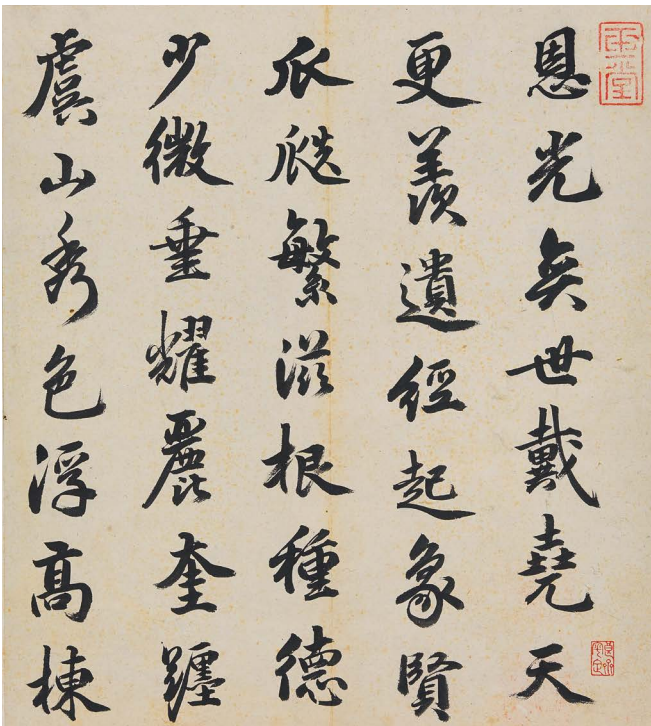 恩光奕世戴堯天
更羨遺經起象賢
瓜瓞繁滋根種德
少微垂耀麗奎躔
虞山秀色浮高棟